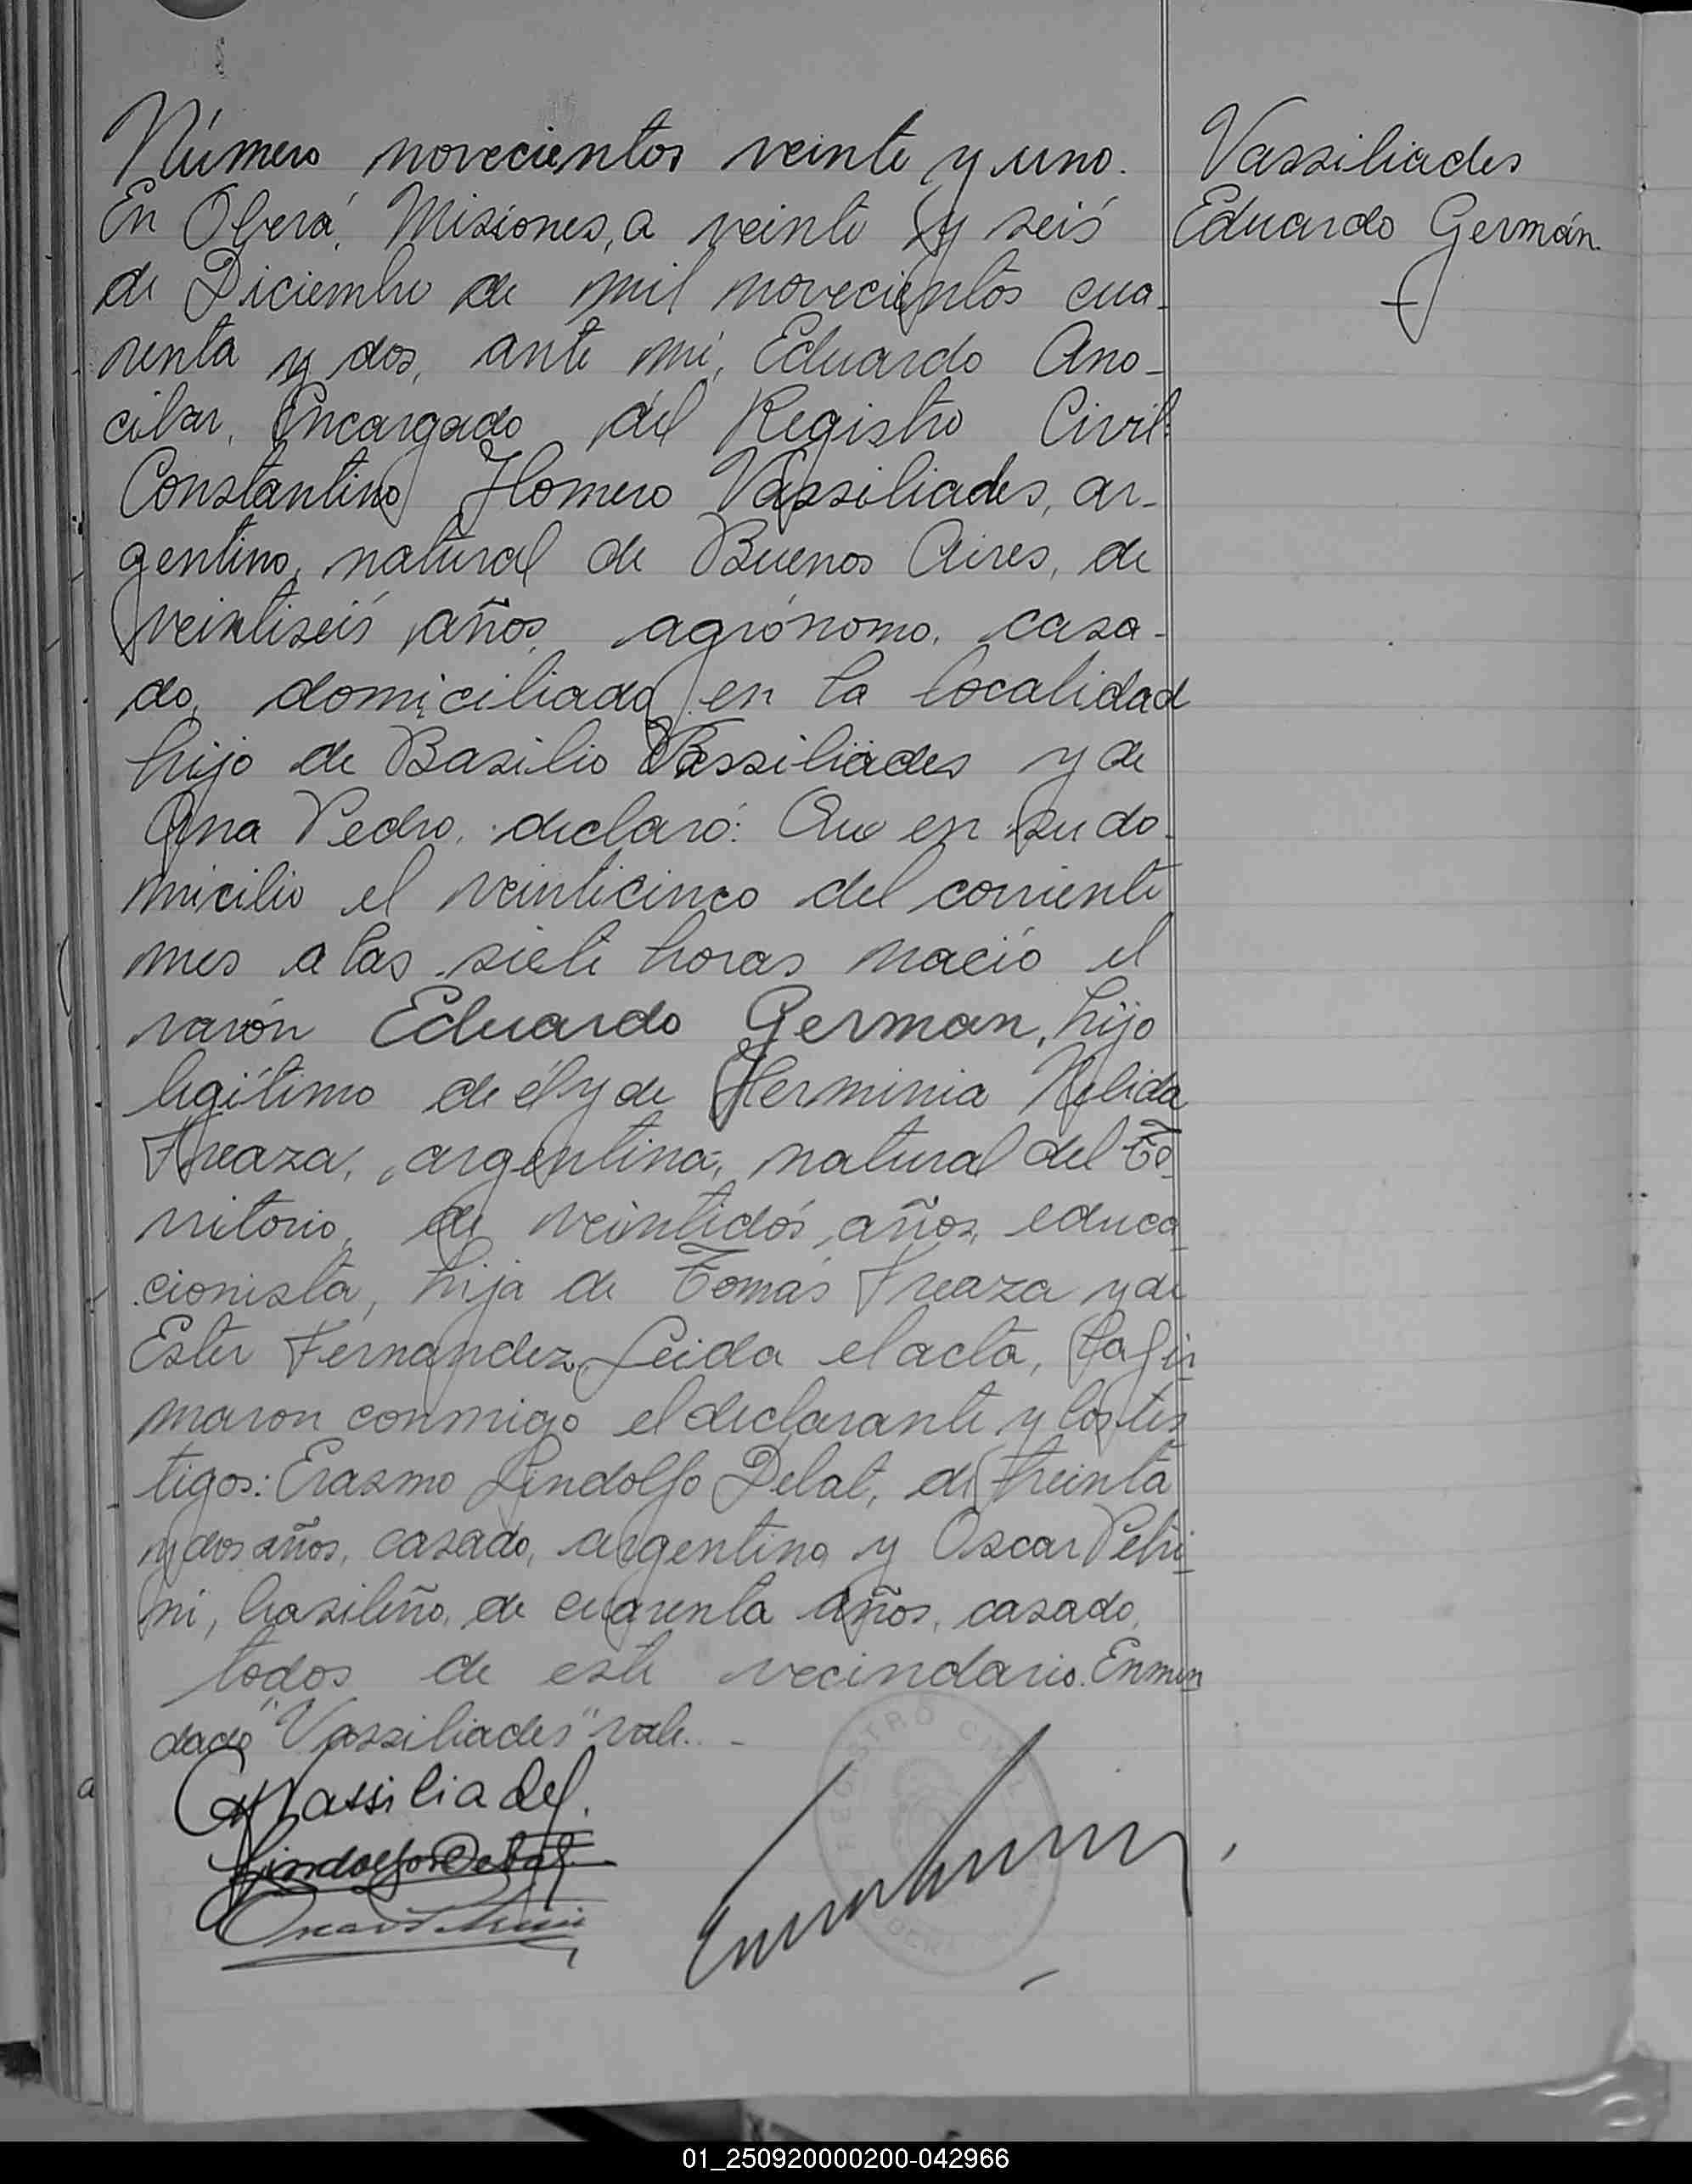 Número novecientos veinte y uno.
En Oberá, Misiones, a veinte y seis
de Diciembre de mil novecientos cua-
renta y dos, ante mi, Eduardo Ano-
cibar, Encargado del Registro Civil:
Constantino Homero Vassiliades, ar-
gentino, natural de Buenos Aires, de
veintiseis años, agrónomo, casa-
do, domiciliado en la localidad
hijo de Basilio Vassiliades y de
Ana Pedro, declaró: Que en su do-
micilio el veinticinco del corriente
mes a las siete horas nació el
varón Eduardo German, hijo
legítimo de él y de Herminia Nelida
Freaza, argentina, natural del Te-
rritorio, de veintidós años, educa-
cionista, hija de Tomás Freaza y de
Ester Fernandez. Leida el acta, la fir-
maron conmigo el declarante y los tes-
tigos: Erasmo Lindolfo Delat, de treinta
y dos años, casado, argentino y Oscar Petri-
ni, brasileño, de cuarenta años, casado,
todos de este vecindario. Enmen-
dado "Vassiliades" vale. -
Vassiliades
Lindolfo Delat
REGISTRO CIVIL
Vassiliades
Eduardo Germán
01_250920000200-042966